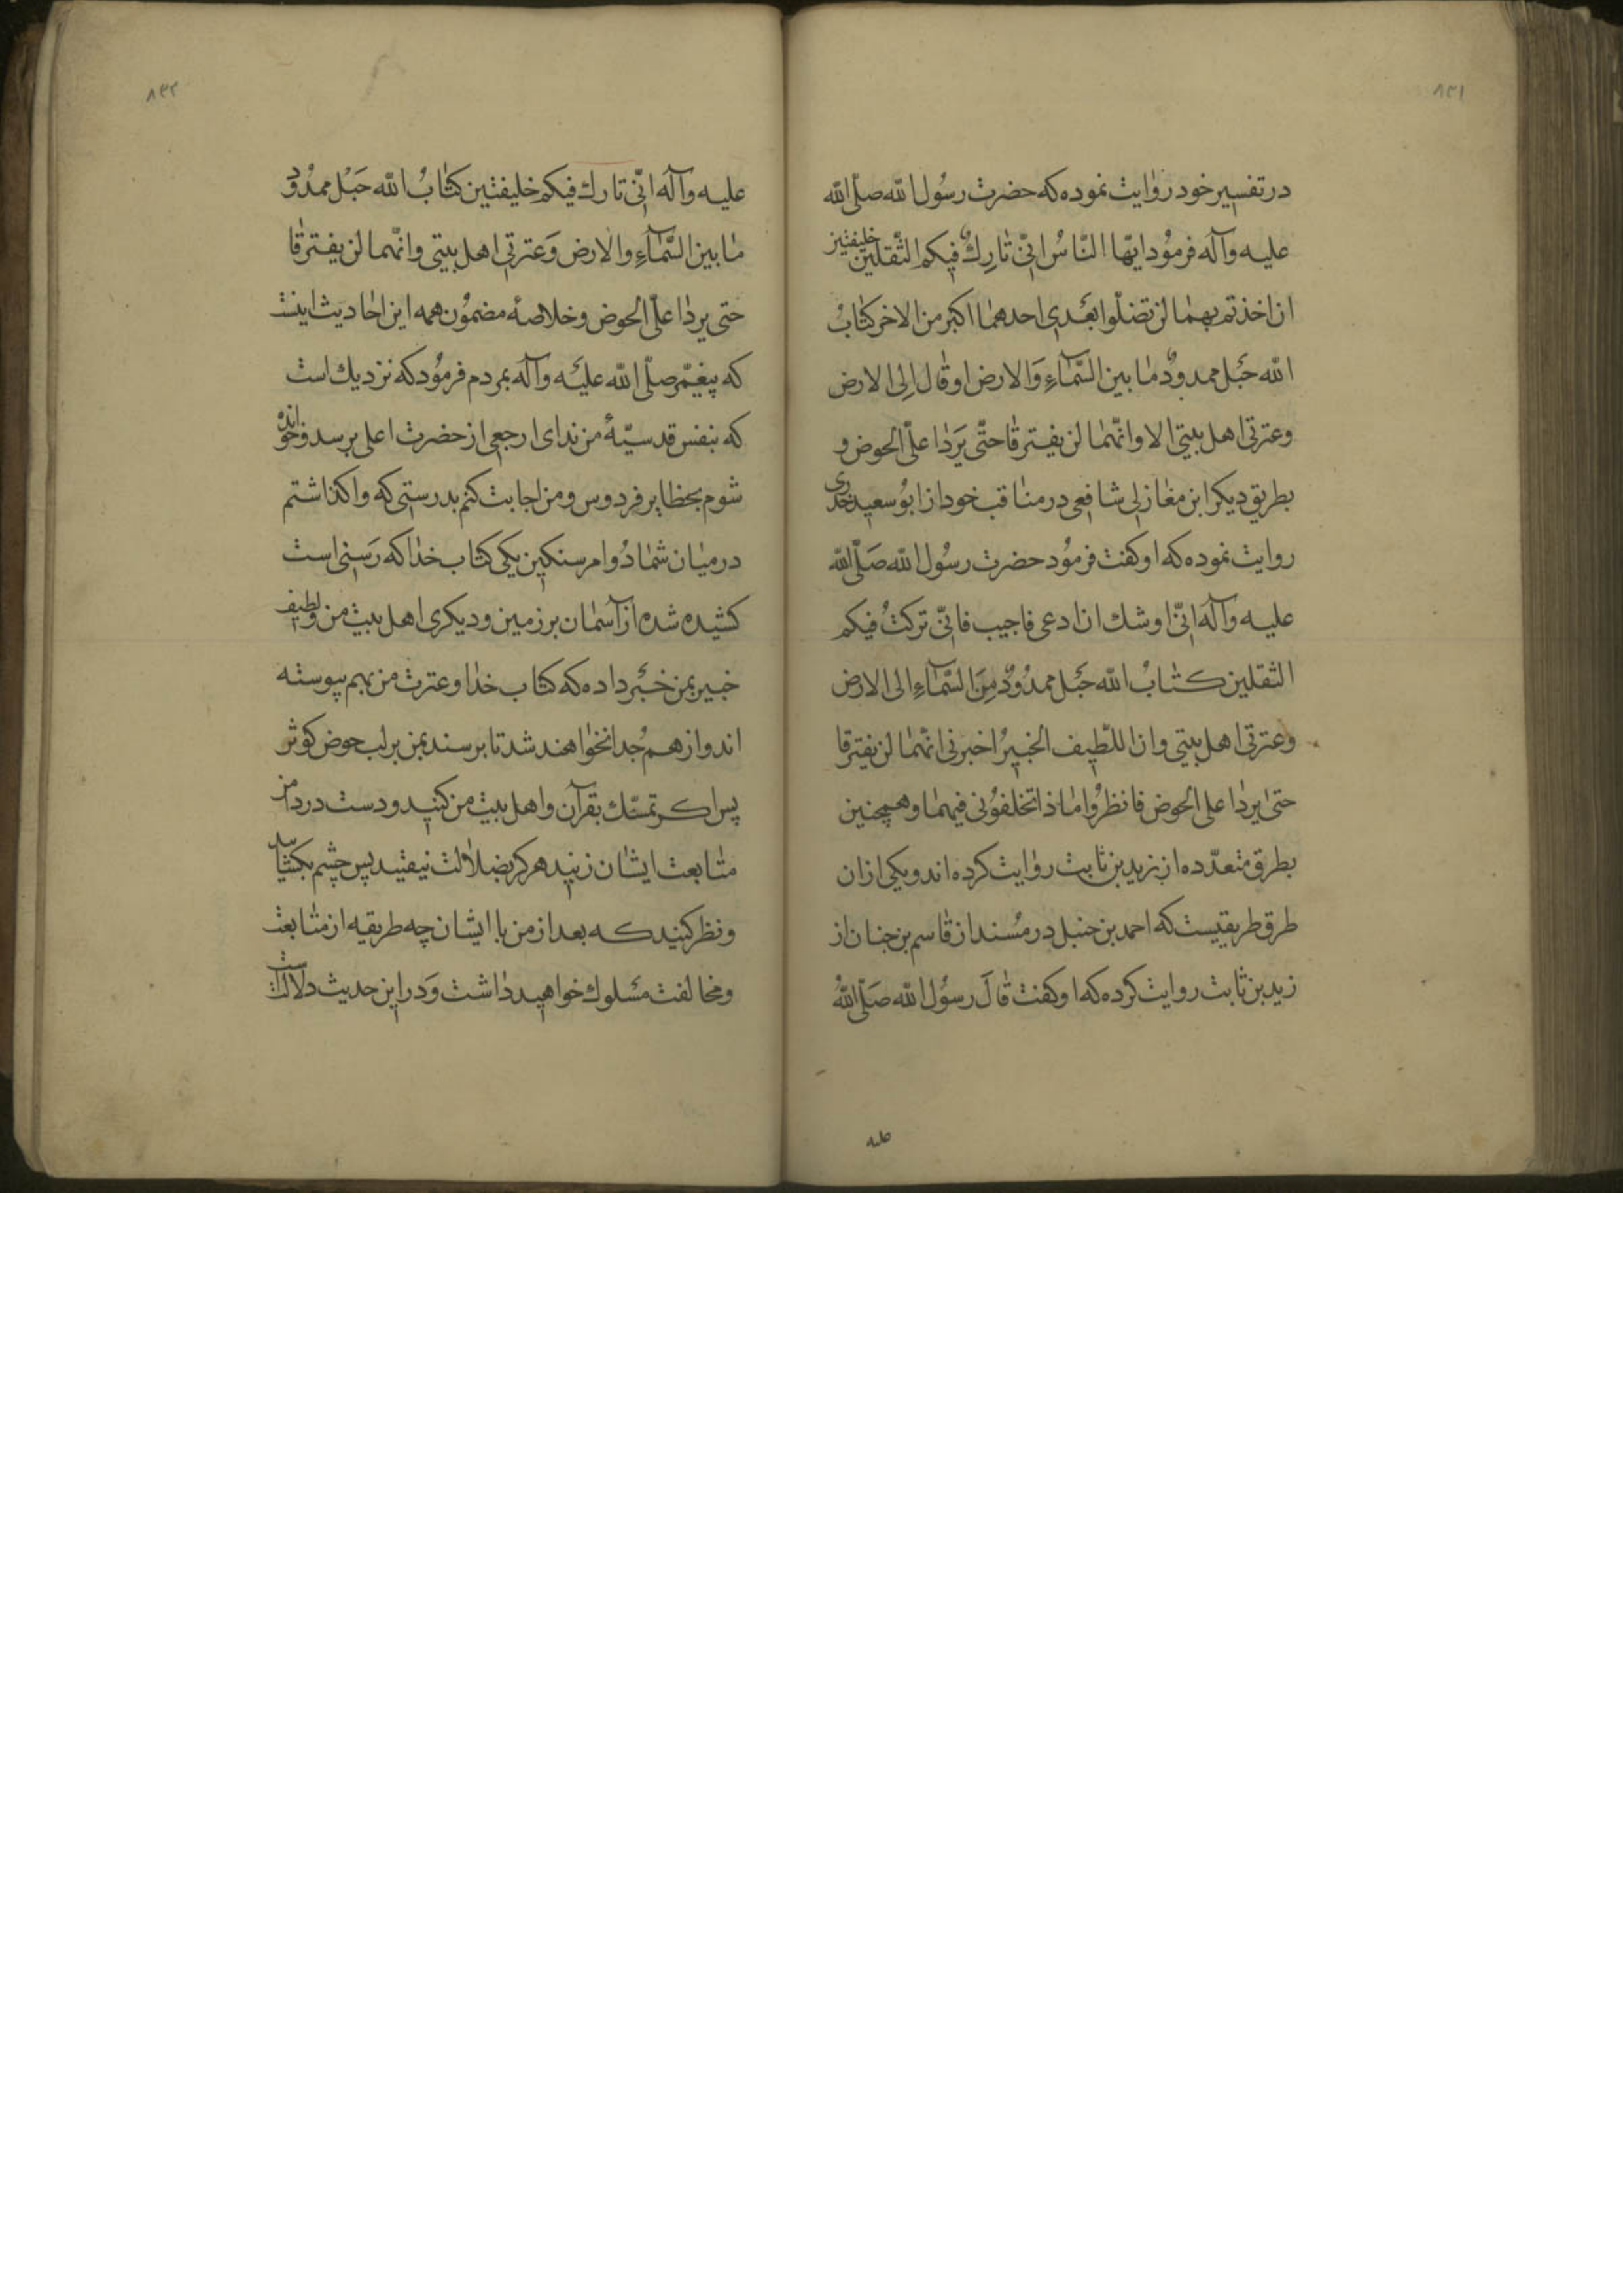 ۸۳۱
در تفسیر خود روایت نموده که حضرت رسُول الله صلّی الله
علیه وآله فرمُود ایّها النّاسُ انّی تٰارِكٌ فیکم الثّقلین خلیفتین
ان اخذتم بهمٰا لن تضلّوا بعَدی احدهمٰا اکبر من الاخر کتٰابُ
الله حَبل ممدودٌ مٰا بین السَّمآءِ وَالارض او قٰال اِلی الارض
وعترتی اهل بیتی الا وانّهمٰا لن یفترقٰا حتّی یَرِدٰا علّی الحوض و
بطریق دیکر ابن مغٰازلی شافعی در منٰاقب خود از ابوُ سعید خدری
روایت نموده که او کفت فرموُد حضرت رسُول الله صَلّی الله
علیه وآله انّی اوشك ان ادعی فاجیب فانّی ترکتُ فیکم
الثقلین کتٰابُ الله حَبل ممدُودٌ مِنَ السَّمآءِ الی الارض
وعترتی اهل بیتی وان اللّطیف الخبیرُ اخبرنی انّهمٰا لن یفترقا
حتیٰ یردٰا علی الحوض فانظرُوا مٰاذا تخلفوُنی فیهمٰا وهمچنین
بطرق متعدّده از زید بن ثابت روٰایت کرده اند ویکی ازان
طرق طریقیست که احمد بن حنبل در مُسند از قٰاسم بن حنان از
زید بن ثابت روایت کرده که او کفت قٰالَ رسوُل الله صَلّی اللهُ
علیه
۸۳۲
علیه وآله انّی تارك فیکم خلیفتین کتٰابُ الله حَبْل ممدُودٌ
مٰا بین السَّمآءِ والارض وَعترتی اهل بیتی وانّهما لن یفترقٰا
حتی یردٰا علّی الحوض وخلاصهٔ مضموُن همه این احٰادیث اینست
که پیغمّبر صلّی الله علیَه وآله بمردم فرموُد که نزدیك است
که بنفس قدسیّهٔ من ندای ارجعی از حضرت اعلی برسد وخوانده
شوم بحظایر فردوس ومن اجابت کنم بدرستی که واکذاشتم
در میٰان شمٰا دُو امر سنکین یکی کتٰاب خدٰا که رَسنی است
کشیده شده از آسمٰان بر زمین ودیکری اهل بیت من ولطیف
خبیر بمن خبَر داده که کتٰاب خدٰا وعترت من بهم پیوسته
اند واز هم جُدا نخوٰاهند شد تا برسند بمن بر لب حوض کوثر
پس اکر تمسّك بقرآن واهل بیت من کنید ودست در دامن
متٰابعت ایشٰان زنید هرکز بضلاٰلت نیفتید پس چشم بکشائید
ونظر کنید که بعد از من با ایشان چه طریقه از متٰابعت
ومخالفت مسَلوك خواهید دٰاشت وَدر این حدیث دلالتست